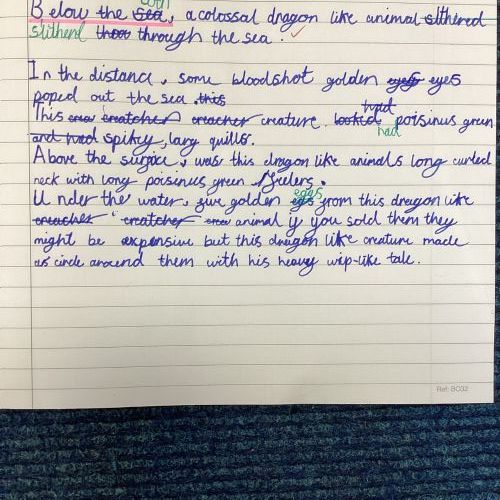 Below the sea, a colossal dragon like animal slithered
slitherd thoo through the sea.
In the distance, some bloodshot golden eyes eyes
poped out the sea this
had
This crea creatcher creacher creature. looked had poisinus green
and had spikey, larg quills.
Above the surface, was this dragon like animals long curled
neck with long poisinus green feelers.
eggs
Under the water, five golden egs from this dragon like
creacher creatcher crea animal if you sold them they
might be expensive but this dragon like creature made
as circle around them with his heavy wip-like tale.
Ref: BC32